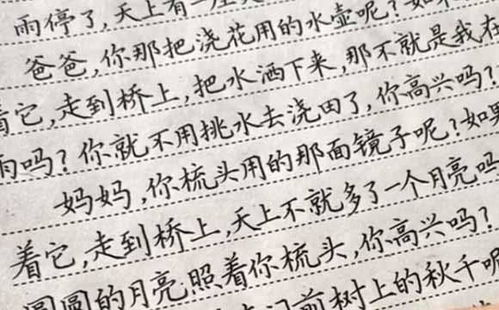 雨停了,天上有一座
爸爸,你那把浇花用的水壶呢?如
着它,走到桥上,把水洒下来,那不就是我在
雨吗?你就不用挑水去浇田了,你高兴吗?
妈妈,你梳头用的那面镜子呢?如果
着它,走到桥上,天上不就多了一个月亮吗
圆圆的月亮照着你梳头,你高兴吗?
门前树上的秋千呢